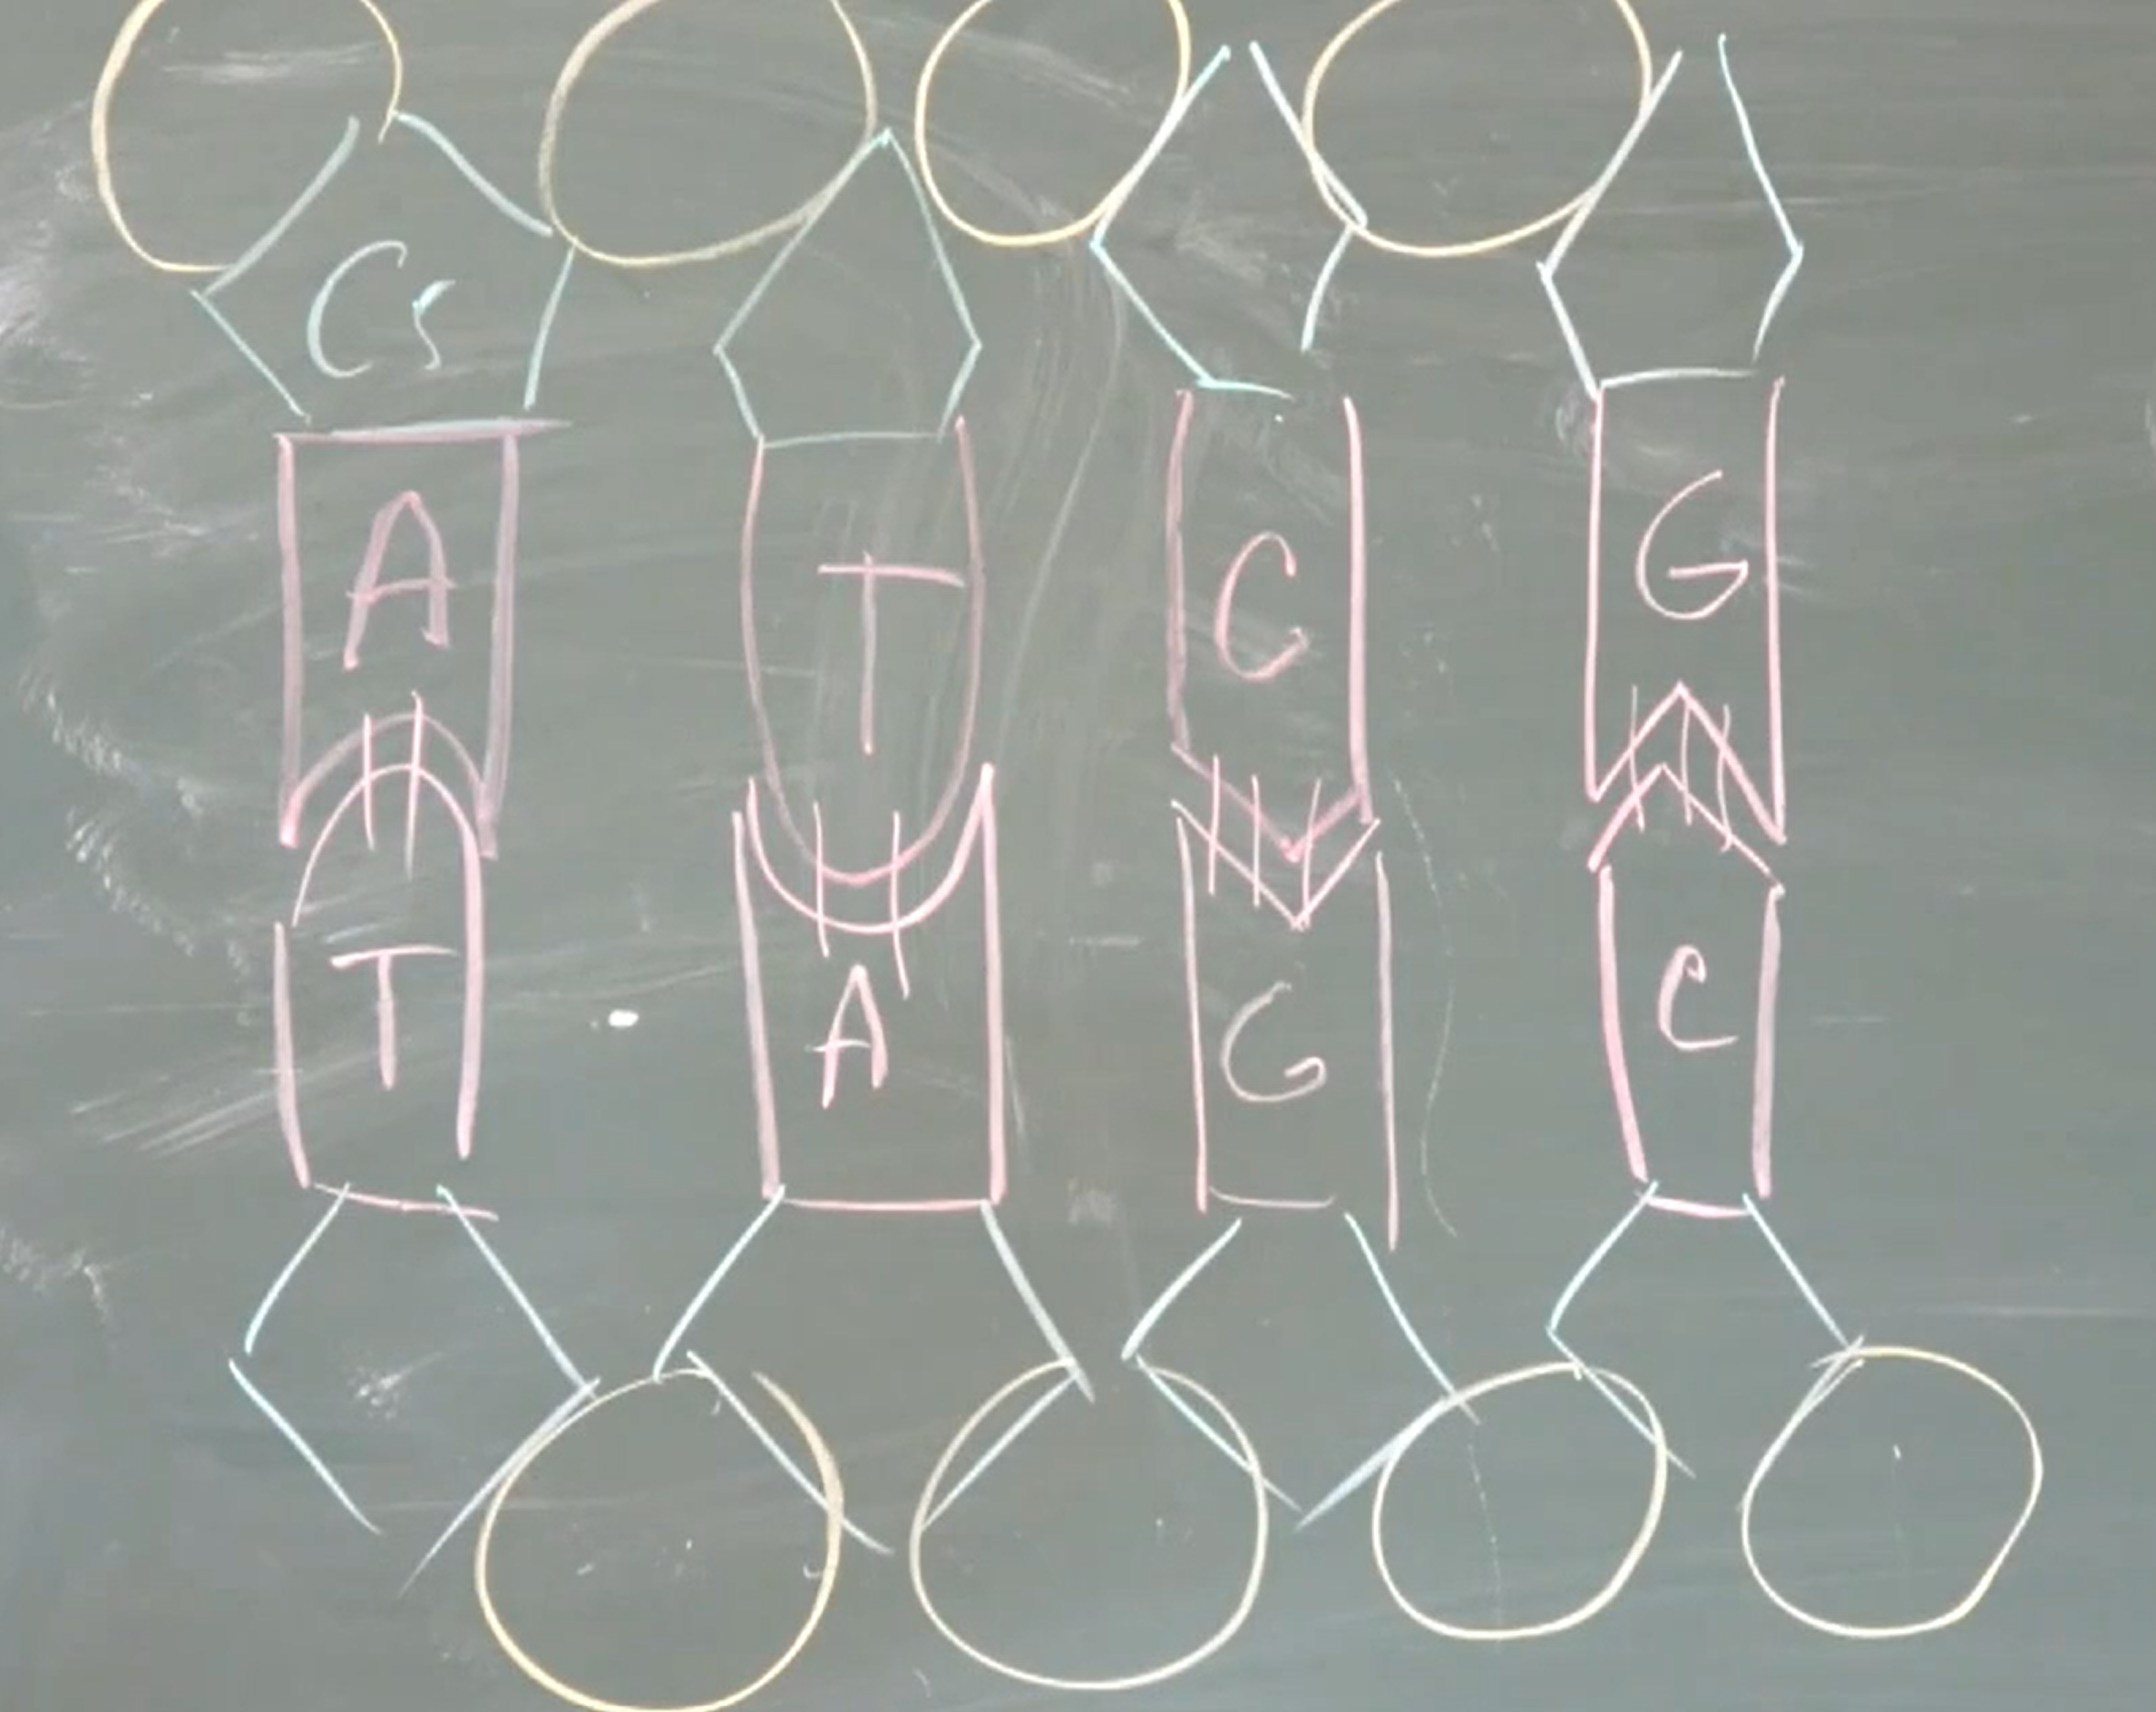 C5
A T C G
T A G C